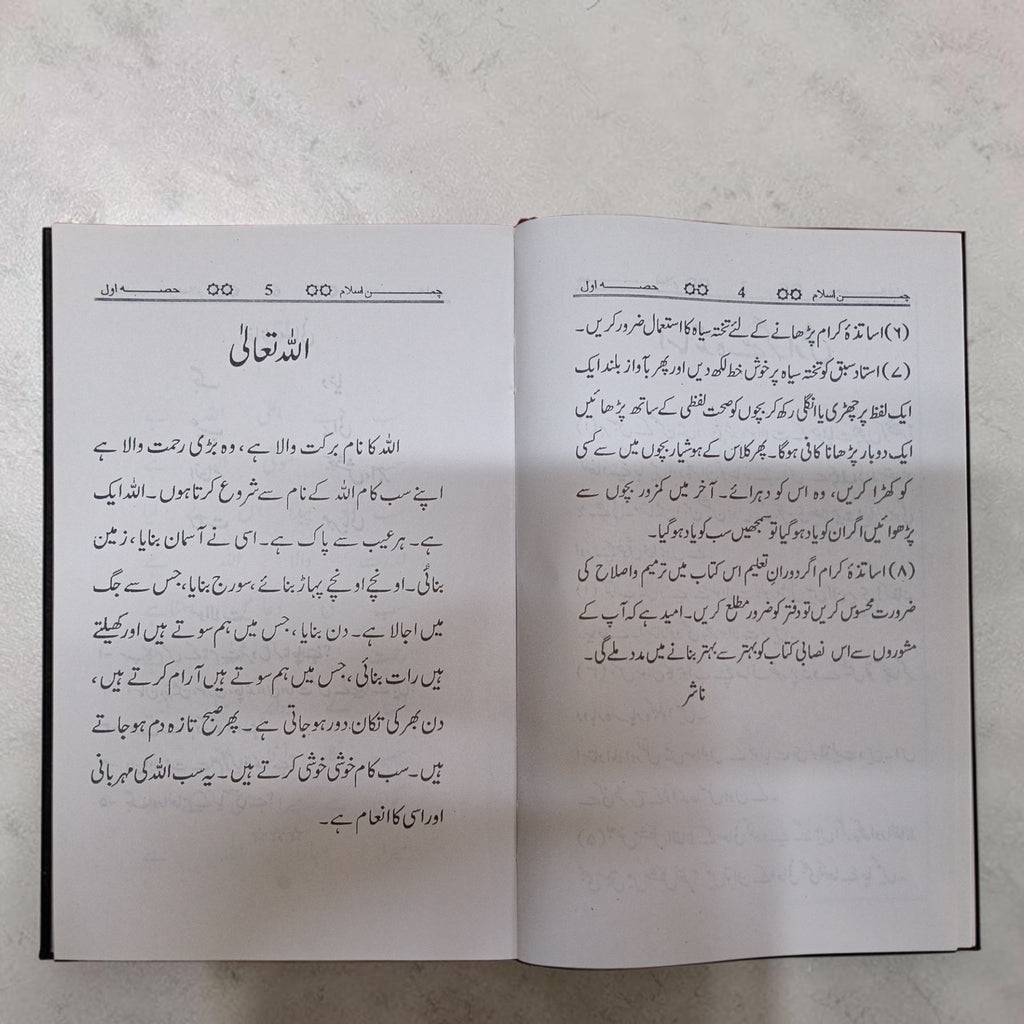 چمن اسلام 4 حصہ اول
(۶) اساتذۂ کرام پڑھانے کے لئے تختہ سیاہ کا استعمال ضرور کریں۔
(۷) استاد سبق کو تختہ سیاہ پر خوش خط لکھ دیں اور پھر بآواز بلند ایک
ایک لفظ پر چھڑی یا انگلی رکھ کر بچوں کو صحت لفظی کے ساتھ پڑھائیں
ایک دو بار پڑھانا کافی ہوگا۔ پھر کلاس کے ہوشیار بچوں میں سے کسی
کو کھڑا کریں، وہ اس کو دہرائے۔ آخر میں کمزور بچوں سے
پڑھوائیں اگر ان کو یاد ہو گیا تو سمجھیں سب کو یاد ہو گیا۔
(۸) اساتذۂ کرام اگر دوران تعلیم اس کتاب میں ترمیم واصلاح کی
ضرورت محسوس کریں تو دفتر کو ضرور مطلع کریں۔ امید ہے کہ آپ کے
مشوروں سے اس نصابی کتاب کو بہتر سے بہتر بنانے میں مدد ملے گی۔
ناشر
چمن اسلام 5 حصہ اول
اللہ تعالیٰ
اللہ کا نام برکت والا ہے، وہ بڑی رحمت والا ہے
اپنے سب کام اللہ کے نام سے شروع کرتا ہوں۔ اللہ ایک
ہے۔ ہر عیب سے پاک ہے۔ اسی نے آسمان بنایا، زمین
بنائی۔ اونچے اونچے پہاڑ بنائے، سورج بنایا، جس سے جگ
میں اجالا ہے۔ دن بنایا، جس میں ہم سوتے ہیں اور کھیلتے
ہیں رات بنائی، جس میں ہم سوتے ہیں آرام کرتے ہیں،
دن بھر کی تکان دور ہو جاتی ہے۔ پھر صبح تازہ دم ہو جاتے
ہیں۔ سب کام خوشی خوشی کرتے ہیں۔ یہ سب اللہ کی مہربانی
اور اسی کا انعام ہے۔